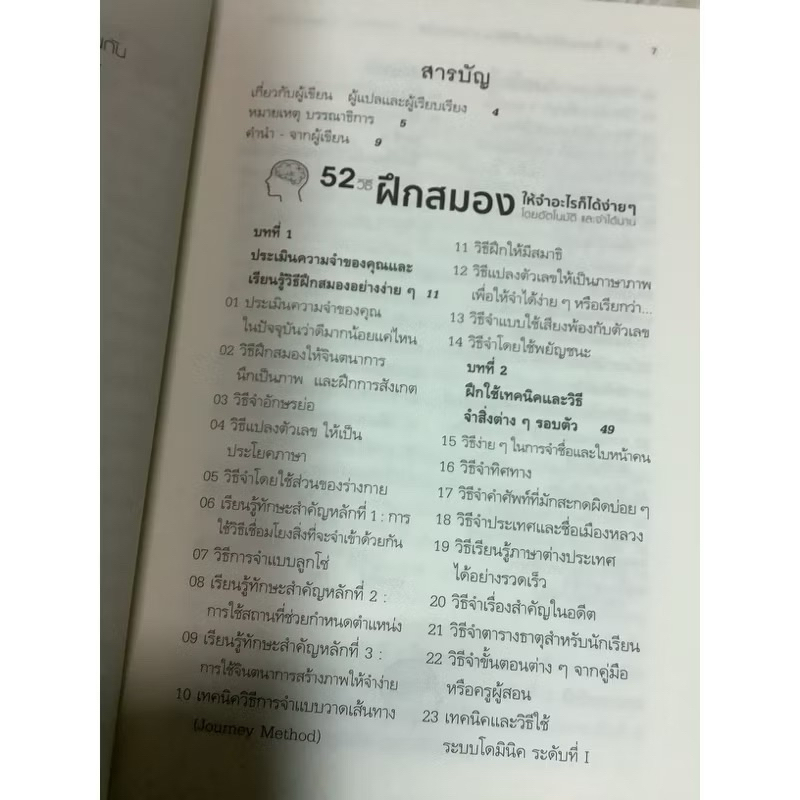 7
สารบัญ
เกี่ยวกับผู้เขียน ผู้แปลและผู้เรียบเรียง 4
หมายเหตุ บรรณาธิการ 5
คำนำ - จากผู้เขียน 9
52 วิธี ฝึกสมอง ให้จำอะไรก็ได้ง่ายๆ
โดยอัตโนมัติ และจำได้นาน
บทที่ 1
ประเมินความจำของคุณและ
เรียนรู้วิธีฝึกสมองอย่างง่าย ๆ 11
01 ประเมินความจำของคุณ
ในปัจจุบันว่าดีมากน้อยแค่ไหน
02 วิธีฝึกสมองให้จินตนาการ
นึกเป็นภาพ และฝึกการสังเกต
03 วิธีจำอักษรย่อ
04 วิธีแปลงตัวเลข ให้เป็น
ประโยคภาษา
05 วิธีจำโดยใช้ส่วนของร่างกาย
06 เรียนรู้ทักษะสำคัญหลักที่ 1 : การ
ใช้วิธีเชื่อมโยงสิ่งที่จะจำเข้าด้วยกัน
07 วิธีการจำแบบลูกโซ่
08 เรียนรู้ทักษะสำคัญหลักที่ 2 :
การใช้สถานที่ช่วยกำหนดตำแหน่ง
09 เรียนรู้ทักษะสำคัญหลักที่ 3 :
การใช้จินตนาการสร้างภาพให้จำง่าย
10 เทคนิควิธีการจำแบบวาดเส้นทาง
(Journey Method)
11 วิธีฝึกให้มีสมาธิ
12 วิธีแปลงตัวเลขให้เป็นภาษาภาพ
เพื่อให้จำได้ง่าย ๆ หรือเรียกว่า...
13 วิธีจำแบบใช้เสียงพ้องกับตัวเลข
14 วิธีจำโดยใช้พยัญชนะ
บทที่ 2
ฝึกใช้เทคนิคและวิธี
จำสิ่งต่าง ๆ รอบตัว 49
15 วิธีง่าย ๆ ในการจำชื่อและใบหน้าคน
16 วิธีจำทิศทาง
17 วิธีจำคำศัพท์ที่มักสะกดผิดบ่อย ๆ
18 วิธีจำประเทศและชื่อเมืองหลวง
19 วิธีเรียนรู้ภาษาต่างประเทศ
ได้อย่างรวดเร็ว
20 วิธีจำเรื่องสำคัญในอดีต
21 วิธีจำตารางธาตุสำหรับนักเรียน
22 วิธีจำขั้นตอนต่าง ๆ จากคู่มือ
หรือครูผู้สอน
23 เทคนิคและวิธีใช้
ระบบโดมินิค ระดับที่ I